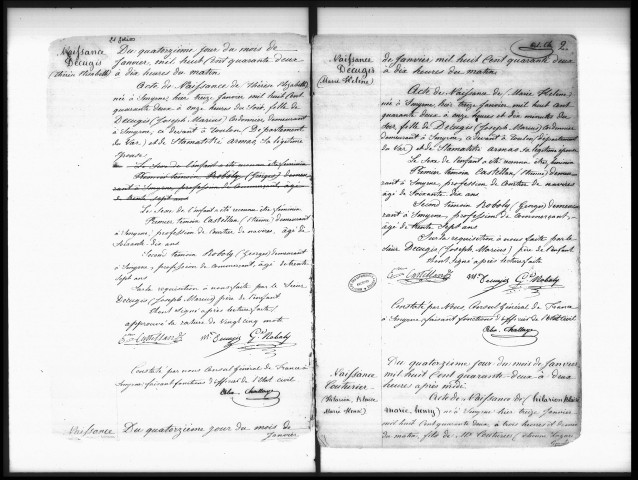 Naissance
Decugis
(Thérèse Elisabeth)
Du quatorzième jour du mois de
Janvier, mil huit Cent quarante deux
à dix heures du matin.
Acte de Naissance de Thérèse Elizabeth
née à Smyrne hier treize Janvier mil huit Cent
quarante deux à onze heures du Soir, fille de
Decugis (Joseph Marius) Cordonnier demeurant
à Smyrne, ci devant à Toulon (Département
du Var) et de Stamatiti armao, Sa légitime
épouse.
Le Sexe de l'enfant a été reconnu être féminin
Premier témoin Castellan (Etienne) demeurant
à Smyrne, profession de Courtier de navires, âgé de
Soixante dix ans
Second témoin Roboly (Georges) demeurant
à Smyrne, profession de Commerçant, âgé de trente
Sept ans
Sur la requisition à nous faite par le Sieur
Decugis (Joseph Marius) père de l'enfant
Et ont Signé après lecture faite
approuvé la rature de vingt cinq mots
Castellan Decugis Roboly
Constaté par nous Consul Général de France à
Smyrne faisant fonctions d'officier de l'Etat Civil
Naissance
Du quatorzième jour du mois de
Janvier
2.
Naissance
Decugis
(Marie Hélène)
de Janvier mil huit Cent quarante deux
à dix heures du matin.
Acte de Naissance de Marie Hélène
née à Smyrne hier treize Janvier, mil huit Cent
quarante deux à onze heures et dix minutes du
Soir fille de Decugis (Joseph Marius) Cordonnier
demeurant à Smyrne, ci devant à Toulon (département
du Var) et de Stamatiti armao, Sa légitime épouse
Le Sexe de l'enfant a été reconnu être féminin
Premier témoin Castellan (Etienne) demeu-
rant à Smyrne, profession de Courtier de navires
âgé de Soixante dix ans.
Second témoin Roboly (Georges) demeu-
rant à Smyrne, profession de Commerçant,
âgé de trente Sept ans
Sur la requisition à nous faite par le
Sieur Decugis (Joseph Marius) père de l'enfant
Et ont Signé après lecture faite
Castellan Decugis Roboly
Constaté par Nous Consul Général de France
à Smyrne faisant fonctions d'officier de l'Etat Civil
Naissance
Couturier
Marie Henri)
Du quatorzième jour du mois de Janvier,
mil huit Cent quarante-deux à deux
heures après midi
Acte de Naissance de (hilarion
marie henry) né à Smyrne hier treize Janvier
mil huit Cent quarante deux, à trois heures et demie
du matin, fils de Mr Couturier